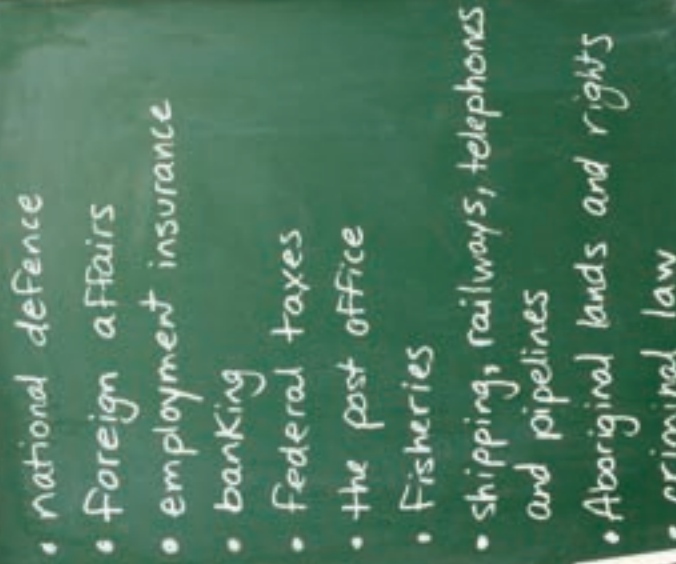 • national defence
• foreign affairs
• employment insurance
• banking
• federal taxes
• the post office
• Fisheries
• shipping, railways, telephones
and pipelines
• Aboriginal lands and rights
• criminal law